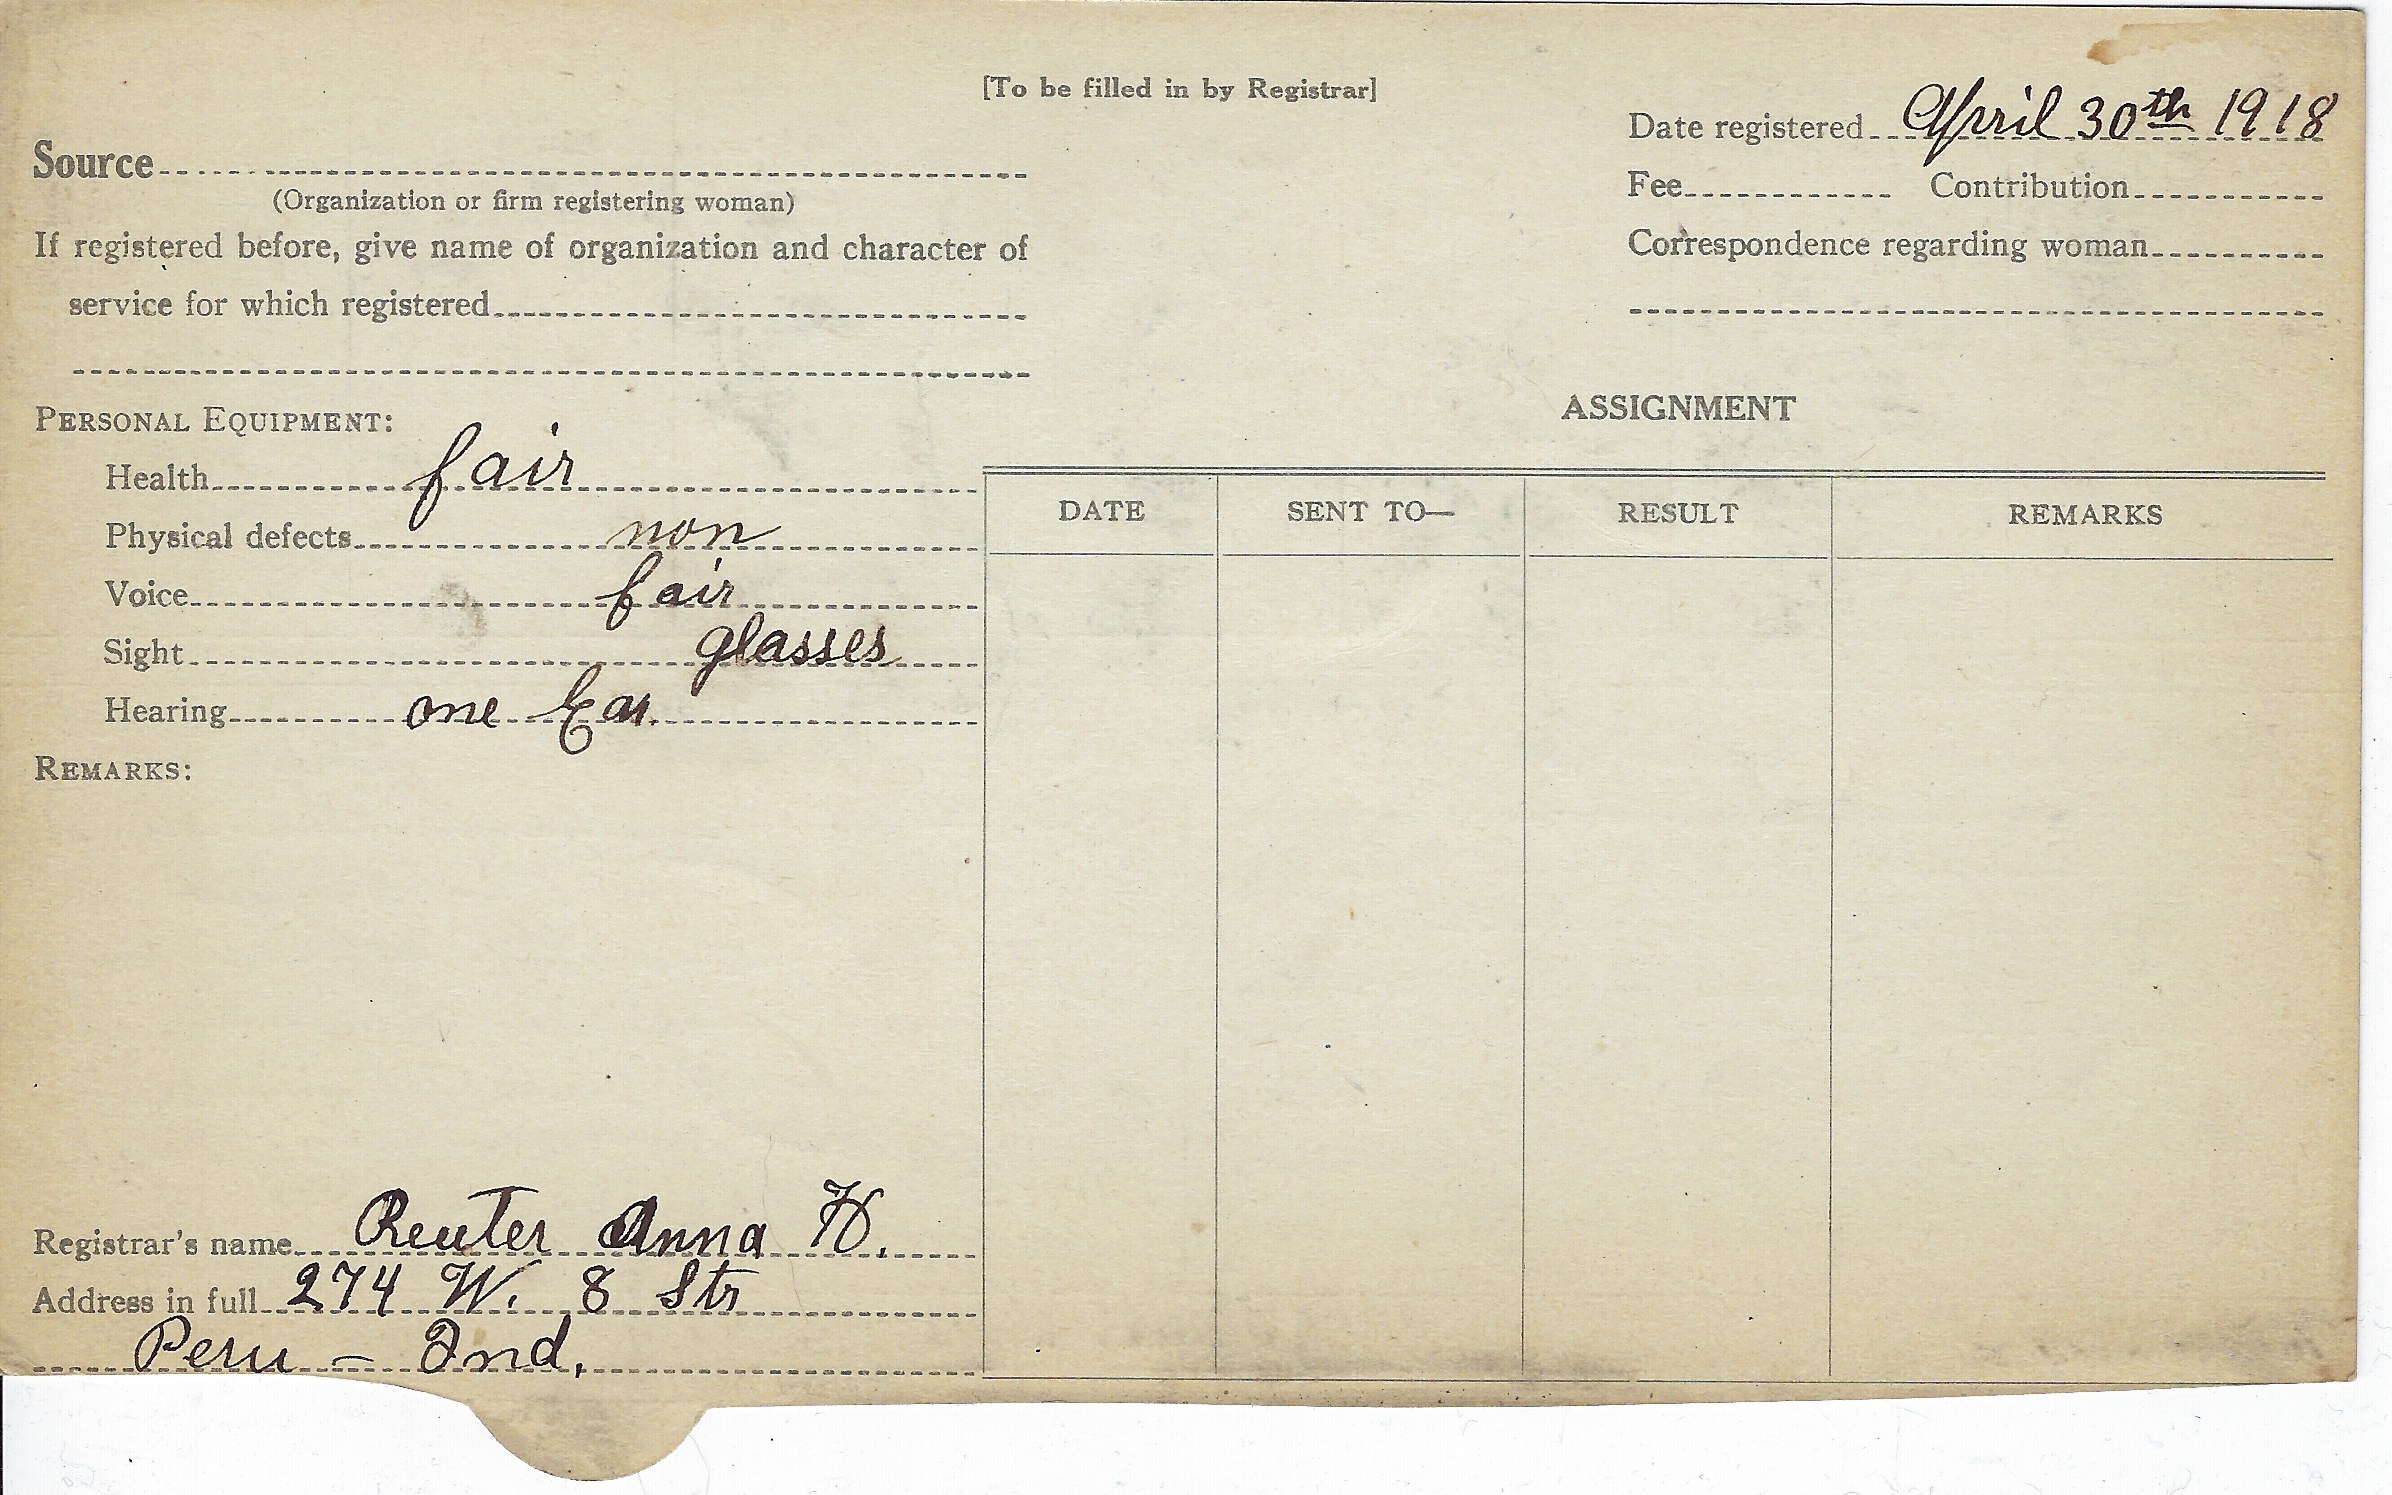 [To be filled in by Registrar]
Date registered April 30th 1918
Source
(Organization or firm registering woman)
Fee Contribution
If registered before, give name of organization and character of
service for which registered
Correspondence regarding woman
PERSONAL EQUIPMENT:
Health fair
Physical defects non
Voice fair
Sight glasses
Hearing one Ear
REMARKS:
ASSIGNMENT
DATE SENT TO— RESULT REMARKS
Registrar's name Reuter Anna H.
Address in full 274 W. 8 Str
Peru – Ind.